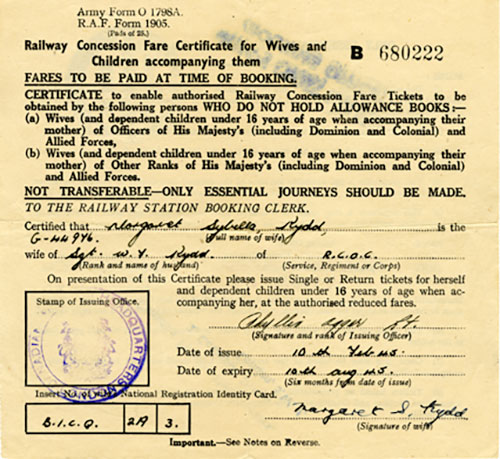 Army Form O 1798A.
R.A.F. Form 1905.
(Pads of 25.)
Railway Concession Fare Certificate for Wives and
Children accompanying them
B 680222
FARES TO BE PAID AT TIME OF BOOKING.
CERTIFICATE to enable authorised Railway Concession Fare Tickets to be
obtained by the following persons WHO DO NOT HOLD ALLOWANCE BOOKS:—
(a) Wives (and dependent children under 16 years of age when accompanying their
mother) of Officers of His Majesty's (including Dominion and Colonial) and
Allied Forces,
(b) Wives (and dependent children under 16 years of age when accompanying their
mother) of Other Ranks of His Majesty's (including Dominion and Colonial)
and Allied Forces.
NOT TRANSFERABLE—ONLY ESSENTIAL JOURNEYS SHOULD BE MADE.
TO THE RAILWAY STATION BOOKING CLERK.
Certified that Margaret Sybella Kydd is the
G-44996. (Full name of wife)
wife of Sgt. W. Y. Kydd. of R.C.O.C.
(Rank and name of husband) (Service, Regiment or Corps)
On presentation of this Certificate please issue Single or Return tickets for herself
and dependent children under 16 years of age when accompanying
her, at the authorised reduced fares.
Stamp of Issuing Office.
HEADQUARTERS
LONDON
Phyllis
(Signature and rank of Issuing Officer)
Date of issue 10th Feb 45
Date of expiry 10th Aug 45.
(Six months from date of issue)
Insert No. National Registration Identity Card.
B.I.C.Q. 2A 3.
Margaret S. Kydd
(Signature of wife)
Important.—See Notes on Reverse.